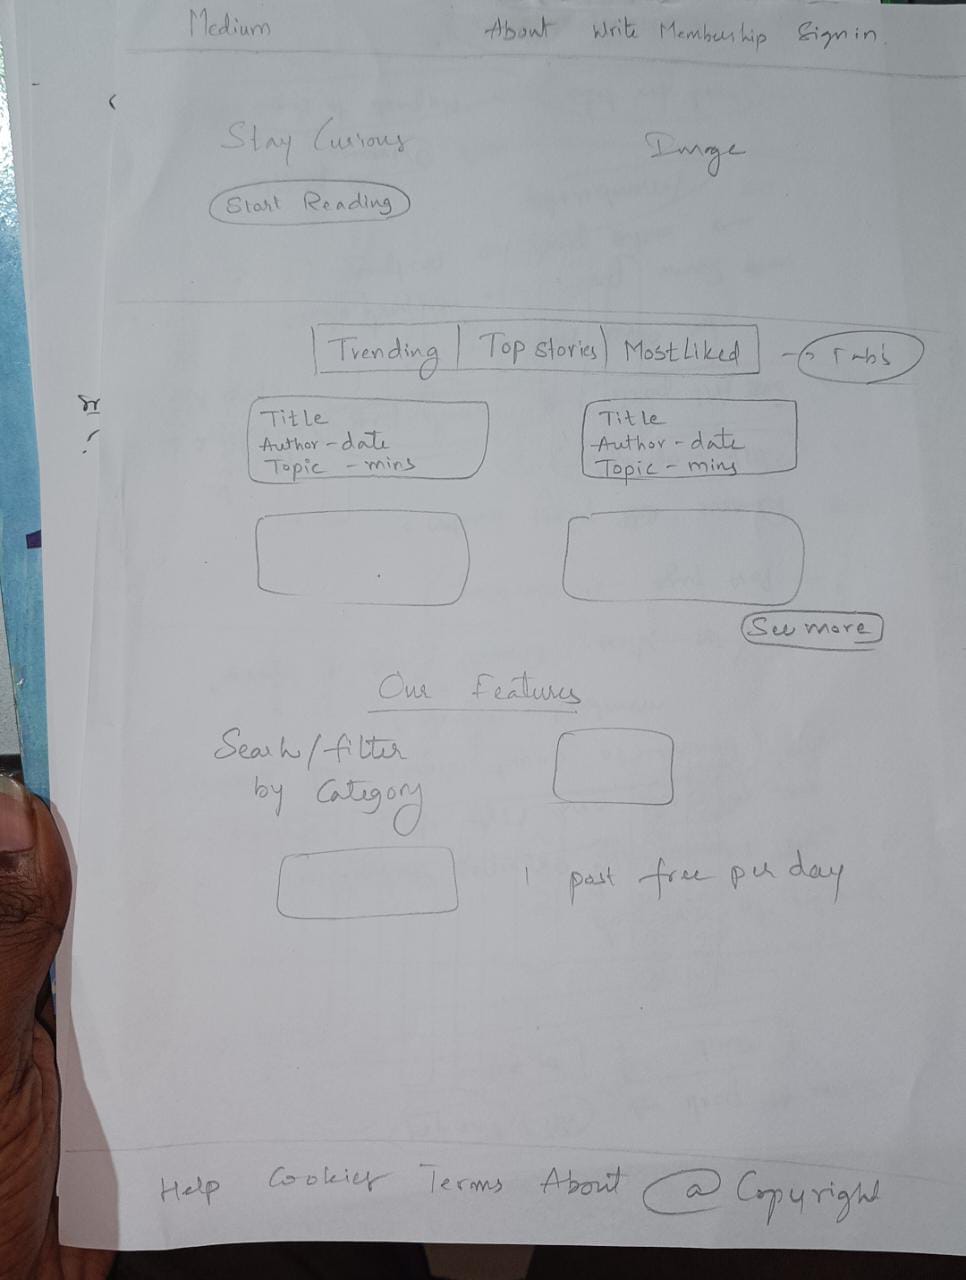 Medium About Write Membership Sign in
Stay Curious
Image
Start Reading
Trending Top stories Most Liked → Tabs
Title
Author - date
Topic - mins
Title
Author - date
Topic - mins
See more
Our Features
Search/filter
by Category
1 post free per day
Help Cookies Terms About @ Copyright